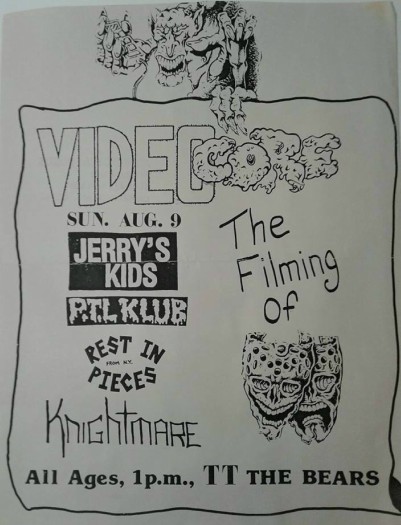 VIDEO GORE
SUN. AUG. 9
The
Filming
Of
JERRY'S
KIDS
P.T.L. KLUB
REST IN
FROM N.Y.
PIECES
KNIGHTMARE
All Ages, 1p.m., TT THE BEARS